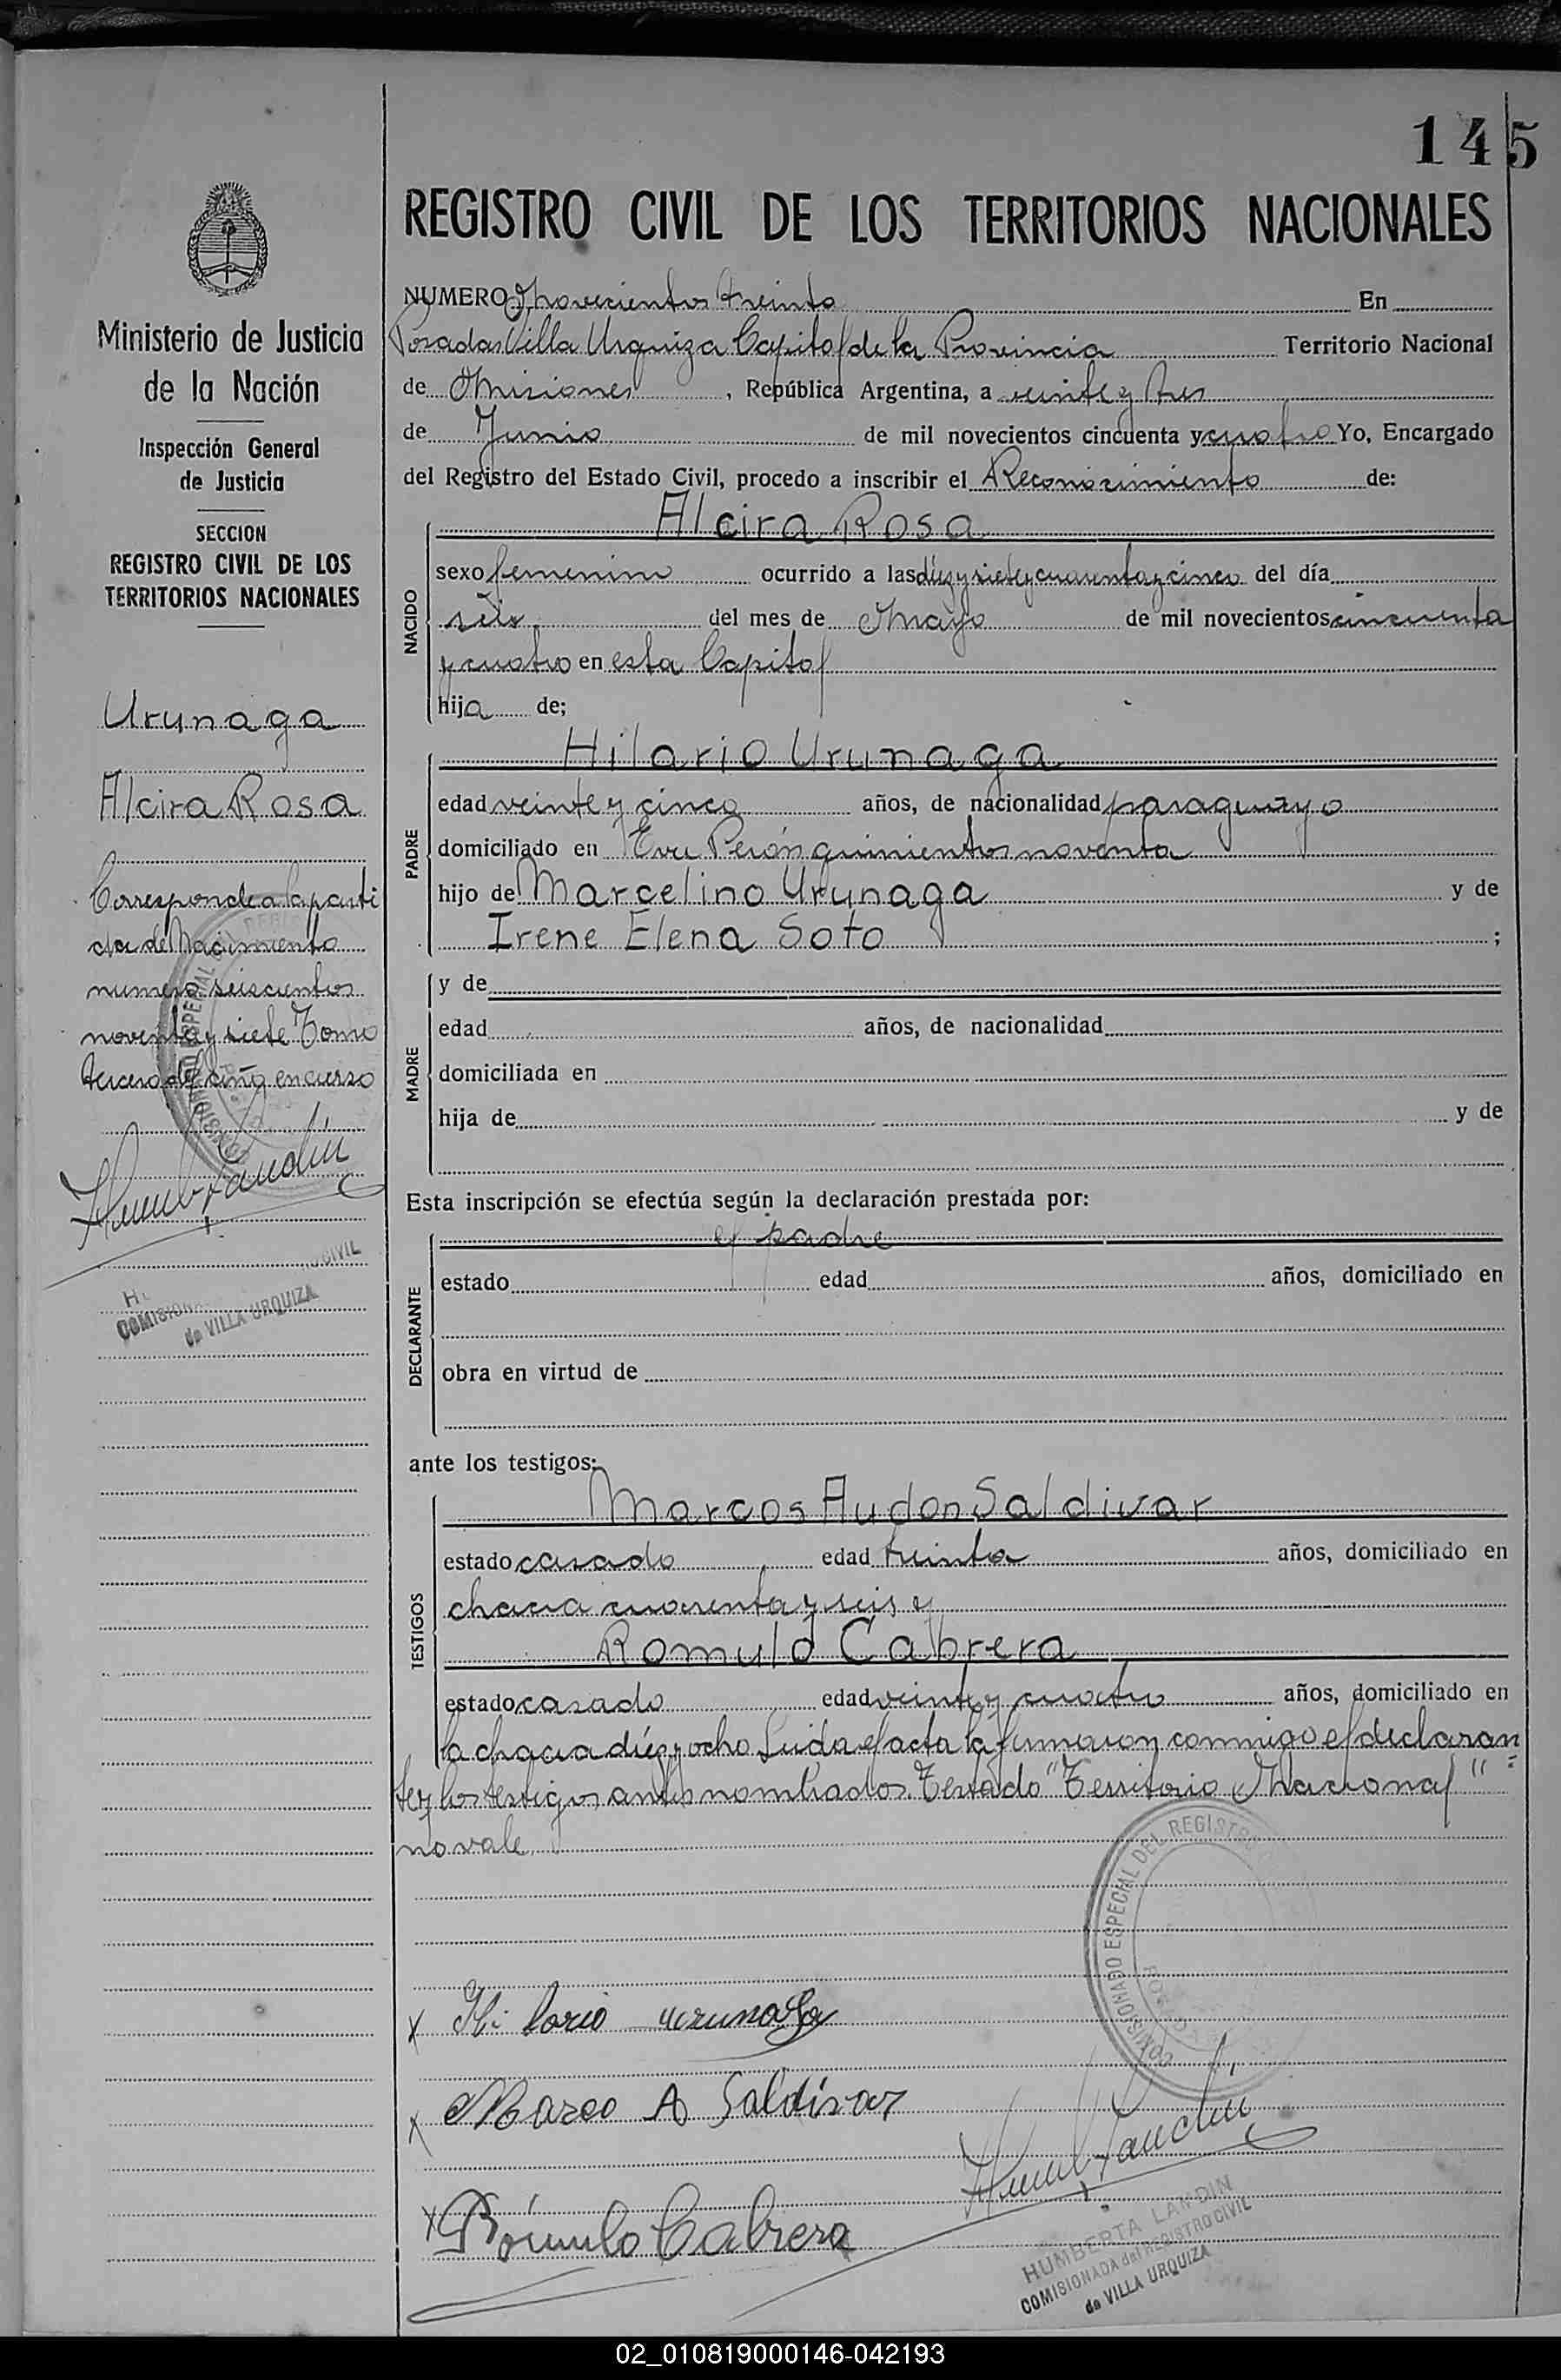 145
REGISTRO CIVIL DE LOS TERRITORIOS NACIONALES
Ministerio de Justicia
de la Nación
Inspección General
de Justicia
SECCION
REGISTRO CIVIL DE LOS
TERRITORIOS NACIONALES
Urunaga
Alcira Rosa
Corresponde a la parti
da de Nacimiento
numero seiscientos
noventa y siete Tomo
tercero del año en curso
COMISION
de VILLA URQUIZA
NUMERO Novecientos treinta En
Posadas Villa Urquiza Capital de la Provincia Territorio Nacional
de Misiones, República Argentina, a veinte y tres
de Junio de mil novecientos cincuenta y cuatro Yo, Encargado
del Registro del Estado Civil, procedo a inscribir el Reconocimiento de:
NACIDO
Alcira Rosa
sexo femenino ocurrido a las diez y siete y cuarenta y cinco del día
seis del mes de Mayo de mil novecientos cincuenta
y cuatro en esta Capital
hija de;
PADRE
Hilario Urunaga
edad veinte y cinco años, de nacionalidad paraguayo
domiciliado en Eva Perón quinientos noventa
hijo de Marcelino Urunaga y de
Irene Elena Soto ;
MADRE
y de
edad años, de nacionalidad
domiciliada en
hija de y de
Esta inscripción se efectúa según la declaración prestada por:
DECLARANTE
el padre
estado edad años, domiciliado en
obra en virtud de
ante los testigos:
TESTIGOS
Marcos Audon Saldivar
estado casado edad treinta años, domiciliado en
chacra cuarenta y seis y
Romulo Cabrera
estado casado edad veinte y cuatro años, domiciliado en
la chacra diez y ocho Leida el acta la firmaron conmigo el declaran
te y los testigos antes nombrados. Testado "Territorio Nacional"
no vale.
COMISIONADO ESPECIAL DEL REGISTRO
Hilario urunaga
Marco A Saldivar
Rómulo Cabrera
HUMBERTA LANDIN
COMISIONADA del REGISTRO CIVIL
de VILLA URQUIZA
02_010819000146-042193